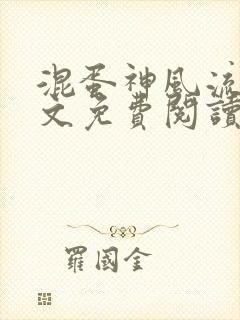 混蛋神風流
文免費閱讀
羅國金